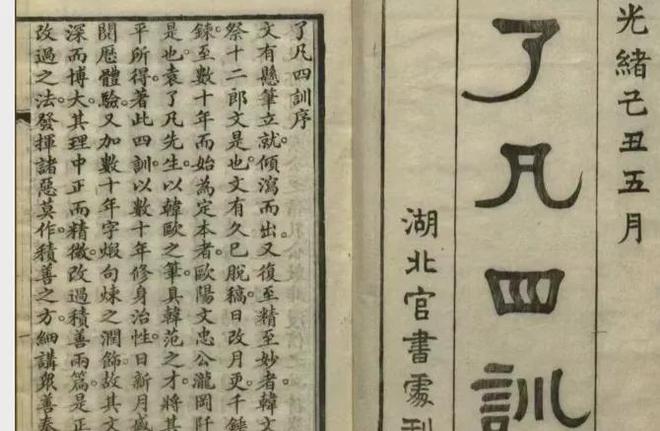 光緒己丑五月
了凡四訓
湖北官書處刊
了凡四訓序
文有懸筆立就。傾瀉而出。又復至精至妙者。韓文
祭十二郎文是也。文有久已脫稿。日改月更。千錘
鍊至數十年而始為定本者。歐陽文忠公瀧岡阡
是也。袁了凡先生以韓歐之筆。具韓范之才。將其
平所得著此四訓。以數十年修身治性。日新月盛
閱歷體驗。又加數十年字煅句煉之潤飾。故其文
深而博大。其理中正而精微。改過積善兩篇。是正
改過之法。發揮諸惡莫作。積善之方。細講眾善奉